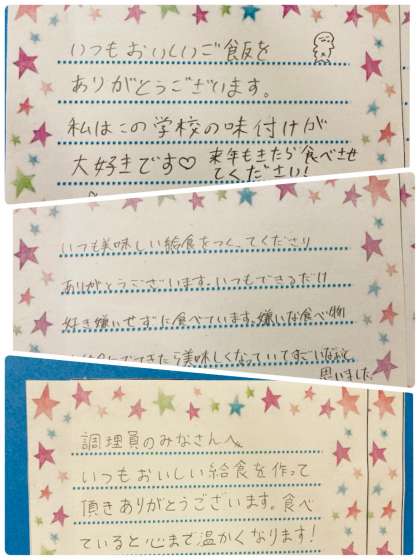 いつもおいしいご飯を
ありがとうございます。
私はこの学校の味付けが
大好きです♡ 来年もきたら食べさせ
てください！
いつも美味しい給食をつくってくださり
ありがとうございます。いつもできるだけ
好き嫌いせずに食べています。嫌いな食べ物
できたら美味しくなっていてすごいなぁと
思いました。
調理員のみなさんへ
いつもおいしい給食を作って
頂きありがとうございます。食べ
ていると心まで温かくなります！